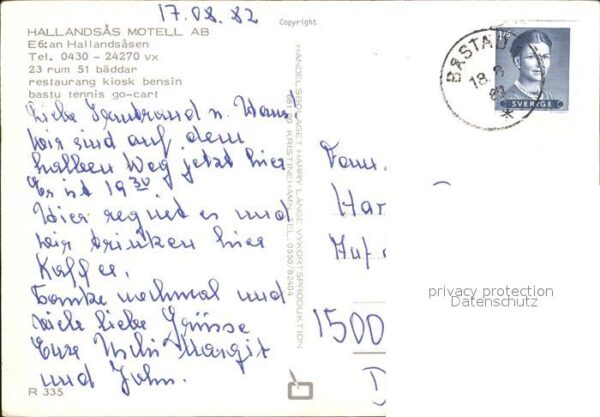 17.08.82
Copyright
HALLANDSÅS MOTELL AB
E6:an Hallandsåsen
Tel. 0430 - 24270 vx
23 rum 51 bäddar
restaurang kiosk bensin
bastu tennis go-cart
Liebe u. Hans!
Wir sind auf dem
halben Weg jetzt hier
Es ist 19 30
Hier regnet es und
wir trinken hier
Kaffee.
Danke nochmal und
viele liebe Grüsse
Eure Uschi Margit
und John.
R 335
HANDELSBOLAGET HARRY LANGE VYKORTSPRODUKTION
681 00 KRISTINEHAMN, TEL. 0550/82404
BÅSTAD
18.8
82
SVERIGE
Fam.
Har
Auf
1500
D
privacy protection
Datenschutz